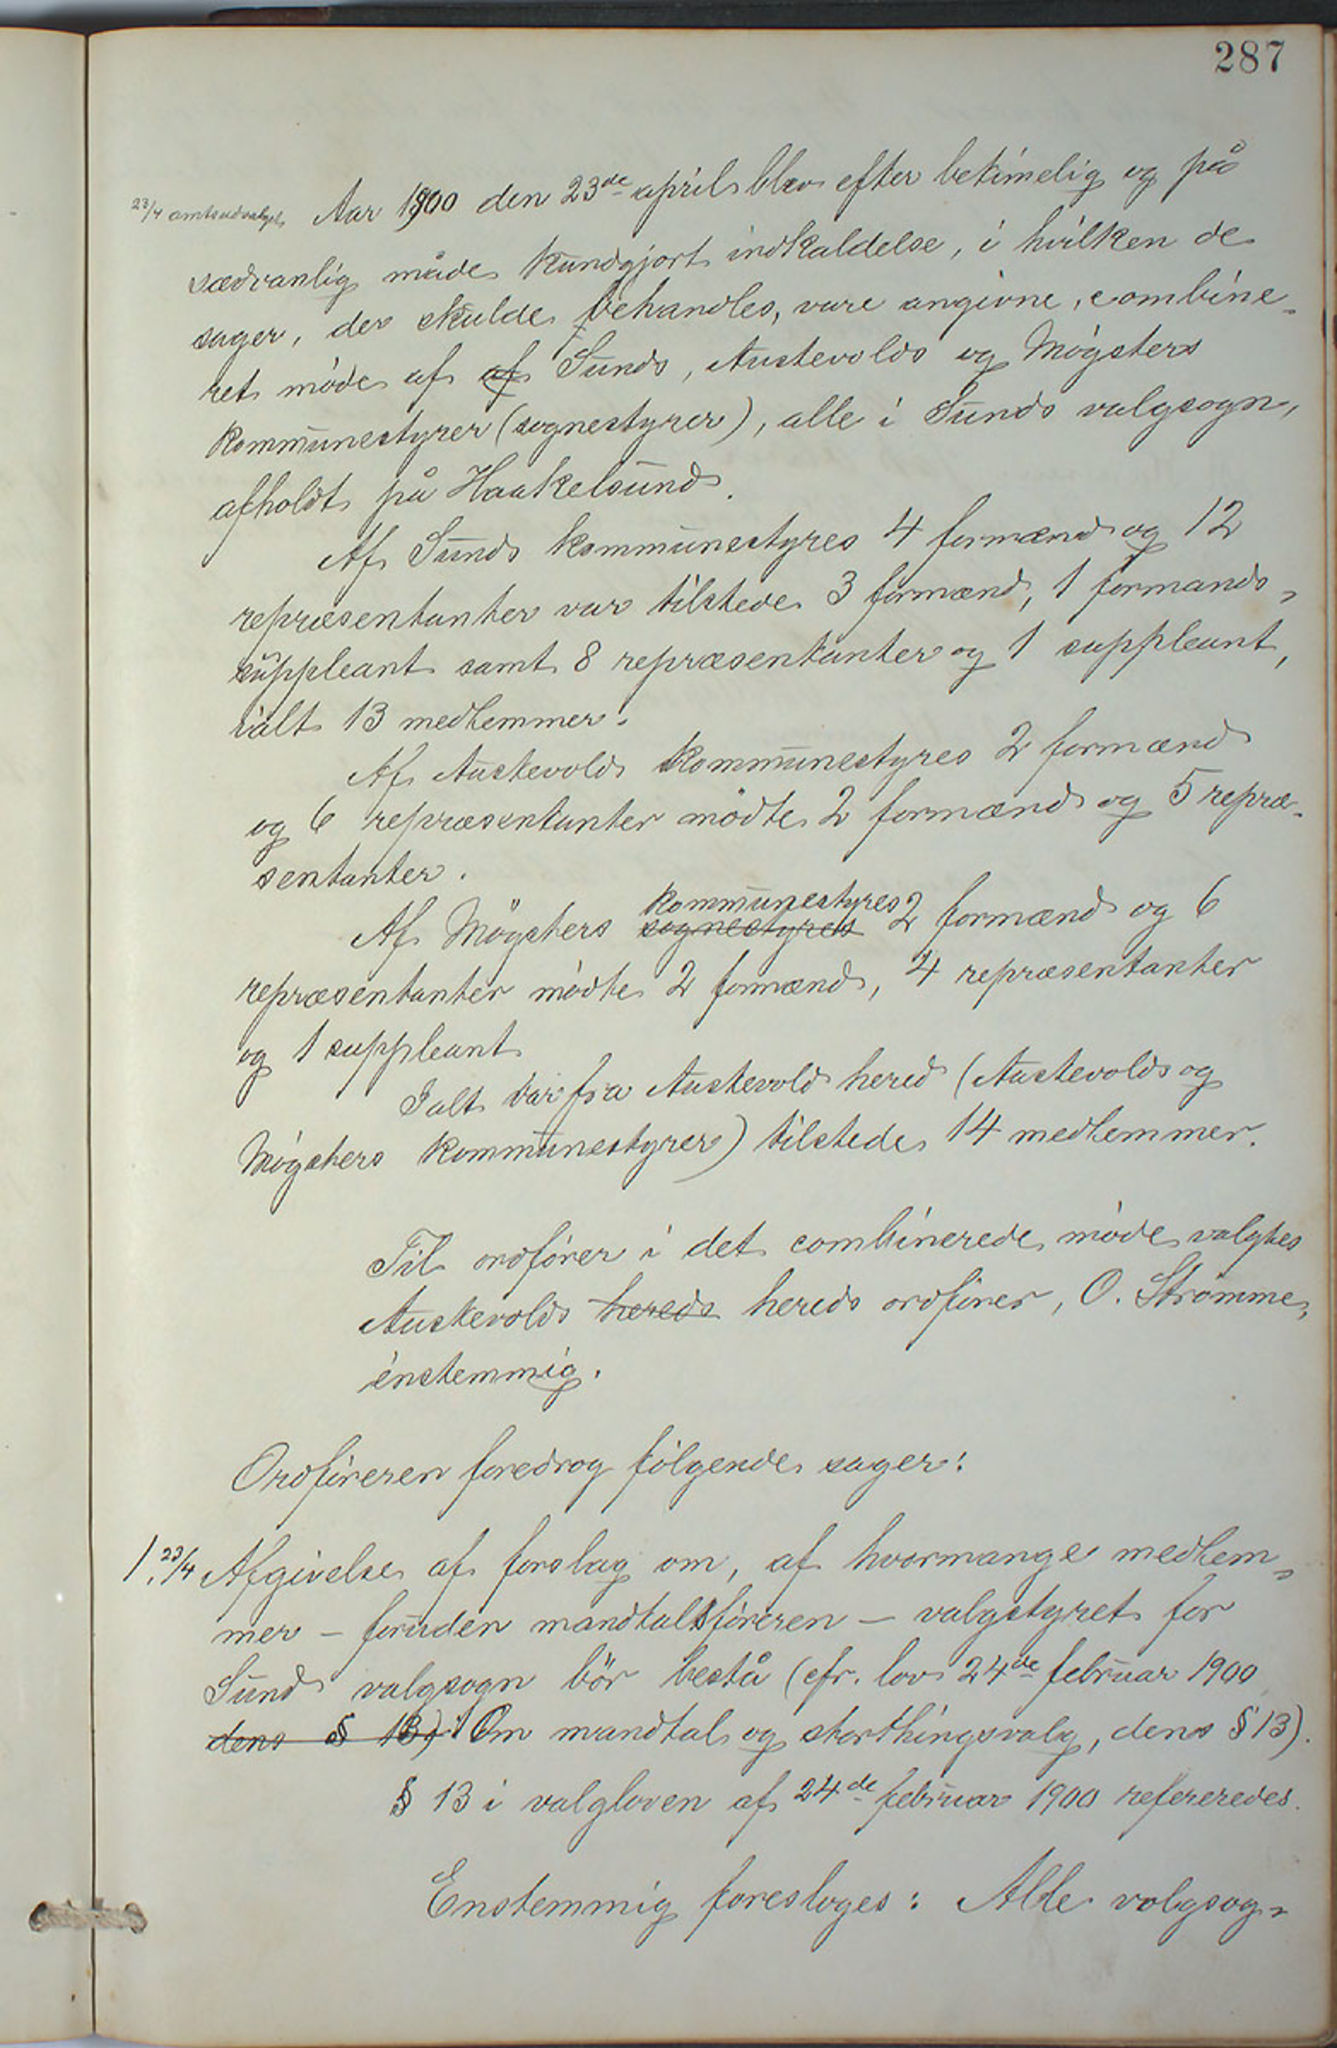 287
23/4 amtsudvalget. Aar 1900 den 23de april blev efter betimelig og på
sædvanlig måde kundgjort indkaldelse, i hvilken de
sager, der skulde behandles, vare angivne, combine-
ret møde af af Sunds, Austevolds og Møgsters
kommunestyrer (sognestyrer), alle i Sunds valgsogn,
afholdt på Haakelsund.
Af Sunds kommunestyres 4 formænd og 12
repræsentanter var tilstede 3 formænd, 1 formands-
suppleant samt 8 repræsentanter og 1 suppleant,
ialt 13 medlemmer.
Af Austevolds kommunestyres 2 formænd
og 6 repræsentanter mødte 2 formænd og 5 repræ-
sentanter.
kommunestyres
Af Møgsters sognestyres 2 formænd og 6
repræsentanter mødte 2 formænd, 4 repræsentanter
og 1 suppleant
Ialt var fra Austevold hered (Austevolds og
Møgsters kommunestyrer) tilstede 14 medlemmer.
Til ordfører i det combinerede møde valgtes
Austevolds hereds hereds ordfører, O. Strømme,
enstemmig.
Ordføreren foredrog følgende sager:
1. 23/4 Afgivelse af forslag om, af hvormange medlem-
mer – foruden mandtalsføreren – valgstyret for
Sund valgsogn bör bestå (cfr. lov 24de februar 1900
dens § 13) Om mandtal og storthingsvalg, dens § 13).
§ 13 i valgloven af 24de februar 1900 refereredes.
Enstemmig foresloges: Alle valgsog-